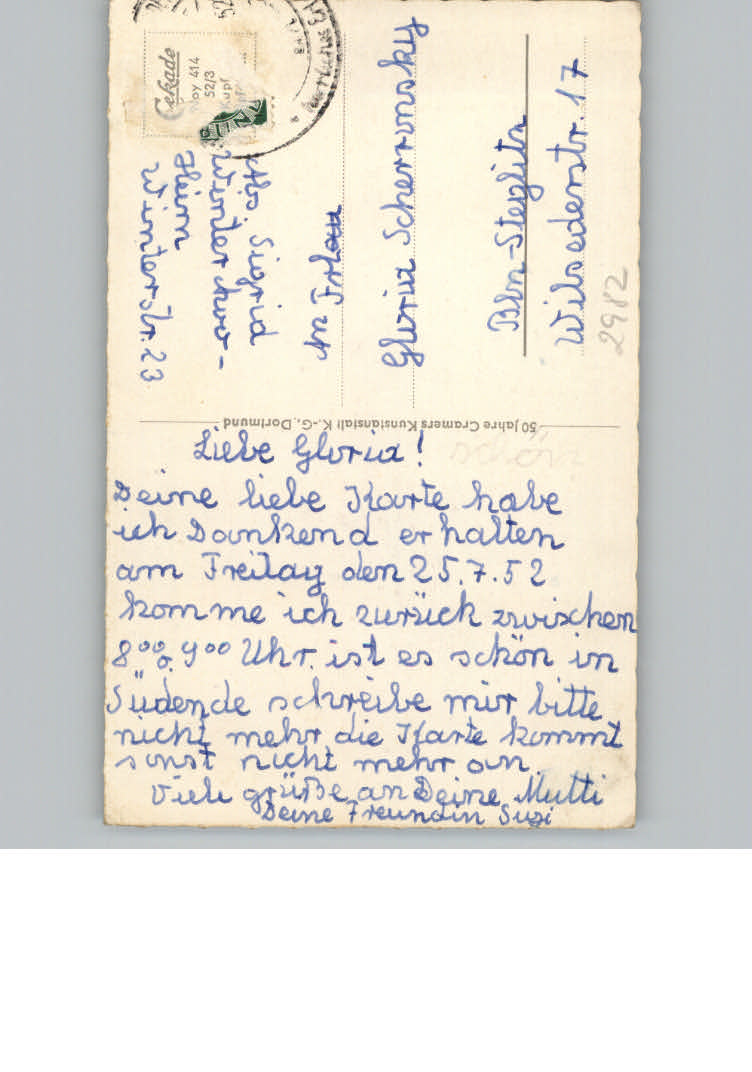 Liebe Gloria!
Deine liebe Karte habe
ich Dankend erhalten
am Freitag den 25.7.52
komme ich zurück zwischen
8⁰⁰ o. 9⁰⁰ Uhr. ist es schön in
Südende schreibe mir bitte
nicht mehr, die Karte kommt
sonst nicht mehr an.
Viele grüße, an Deine Mutti
Deine Freundin Susi
50 Jahre Cramers Kunstanstalt K.-G., Dortmund
schön
Cekade
414
52/3
Abs. Sigrid
Heim
Winterstr. 23
An Frau
Gloria
Bln-Steglitz
Wilsederstr. 17
2982